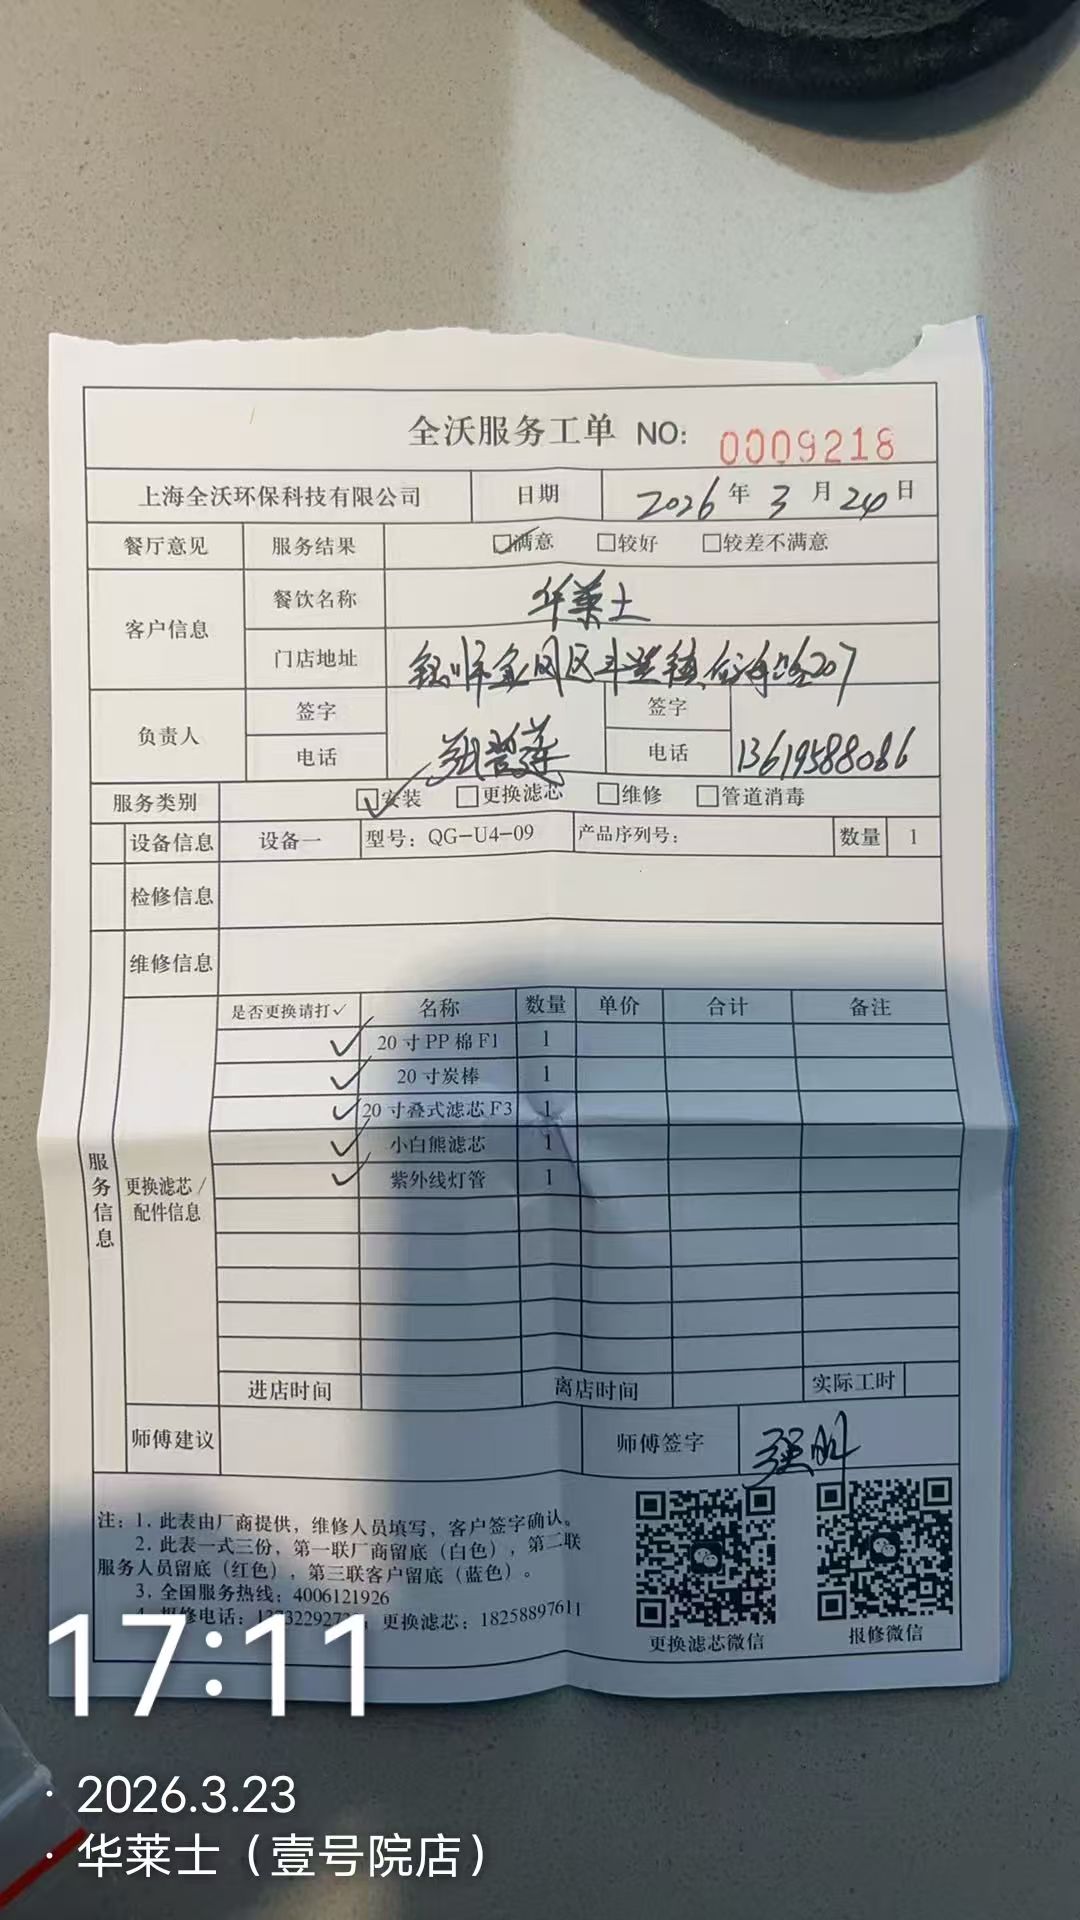 全沃服务工单 NO: 0009218
上海全沃环保科技有限公司 日期 2026年3月24日
餐厅意见 服务结果 ☑满意 □较好 □较差不满意
客户信息 餐饮名称 华莱士
门店地址 银川市金凤区丰登镇 207
负责人 签字 签字
电话 电话 13619588086
服务类别 ☑安装 □更换滤芯 □维修 □管道消毒
设备信息 设备一 型号：QG-U4-09 产品序列号： 数量 1
检修信息
维修信息
服务信息
更换滤芯/配件信息
是否更换请打✓ 名称 数量 单价 合计 备注
✓ 20寸PP棉F1 1
✓ 20寸炭棒 1
✓ 20寸叠式滤芯F3 1
✓ 小白熊滤芯 1
✓ 紫外线灯管 1
进店时间 离店时间 实际工时
师傅建议 师傅签字
注：1. 此表由厂商提供，维修人员填写，客户签字确认。
2. 此表一式三份，第一联厂商留底（白色），第二联
服务人员留底（红色），第三联客户留底（蓝色）。
3. 全国服务热线：4006121926
4. 报修电话： 更换滤芯：18258897611
更换滤芯微信 报修微信
17:11
· 2026.3.23
· 华莱士（壹号院店）